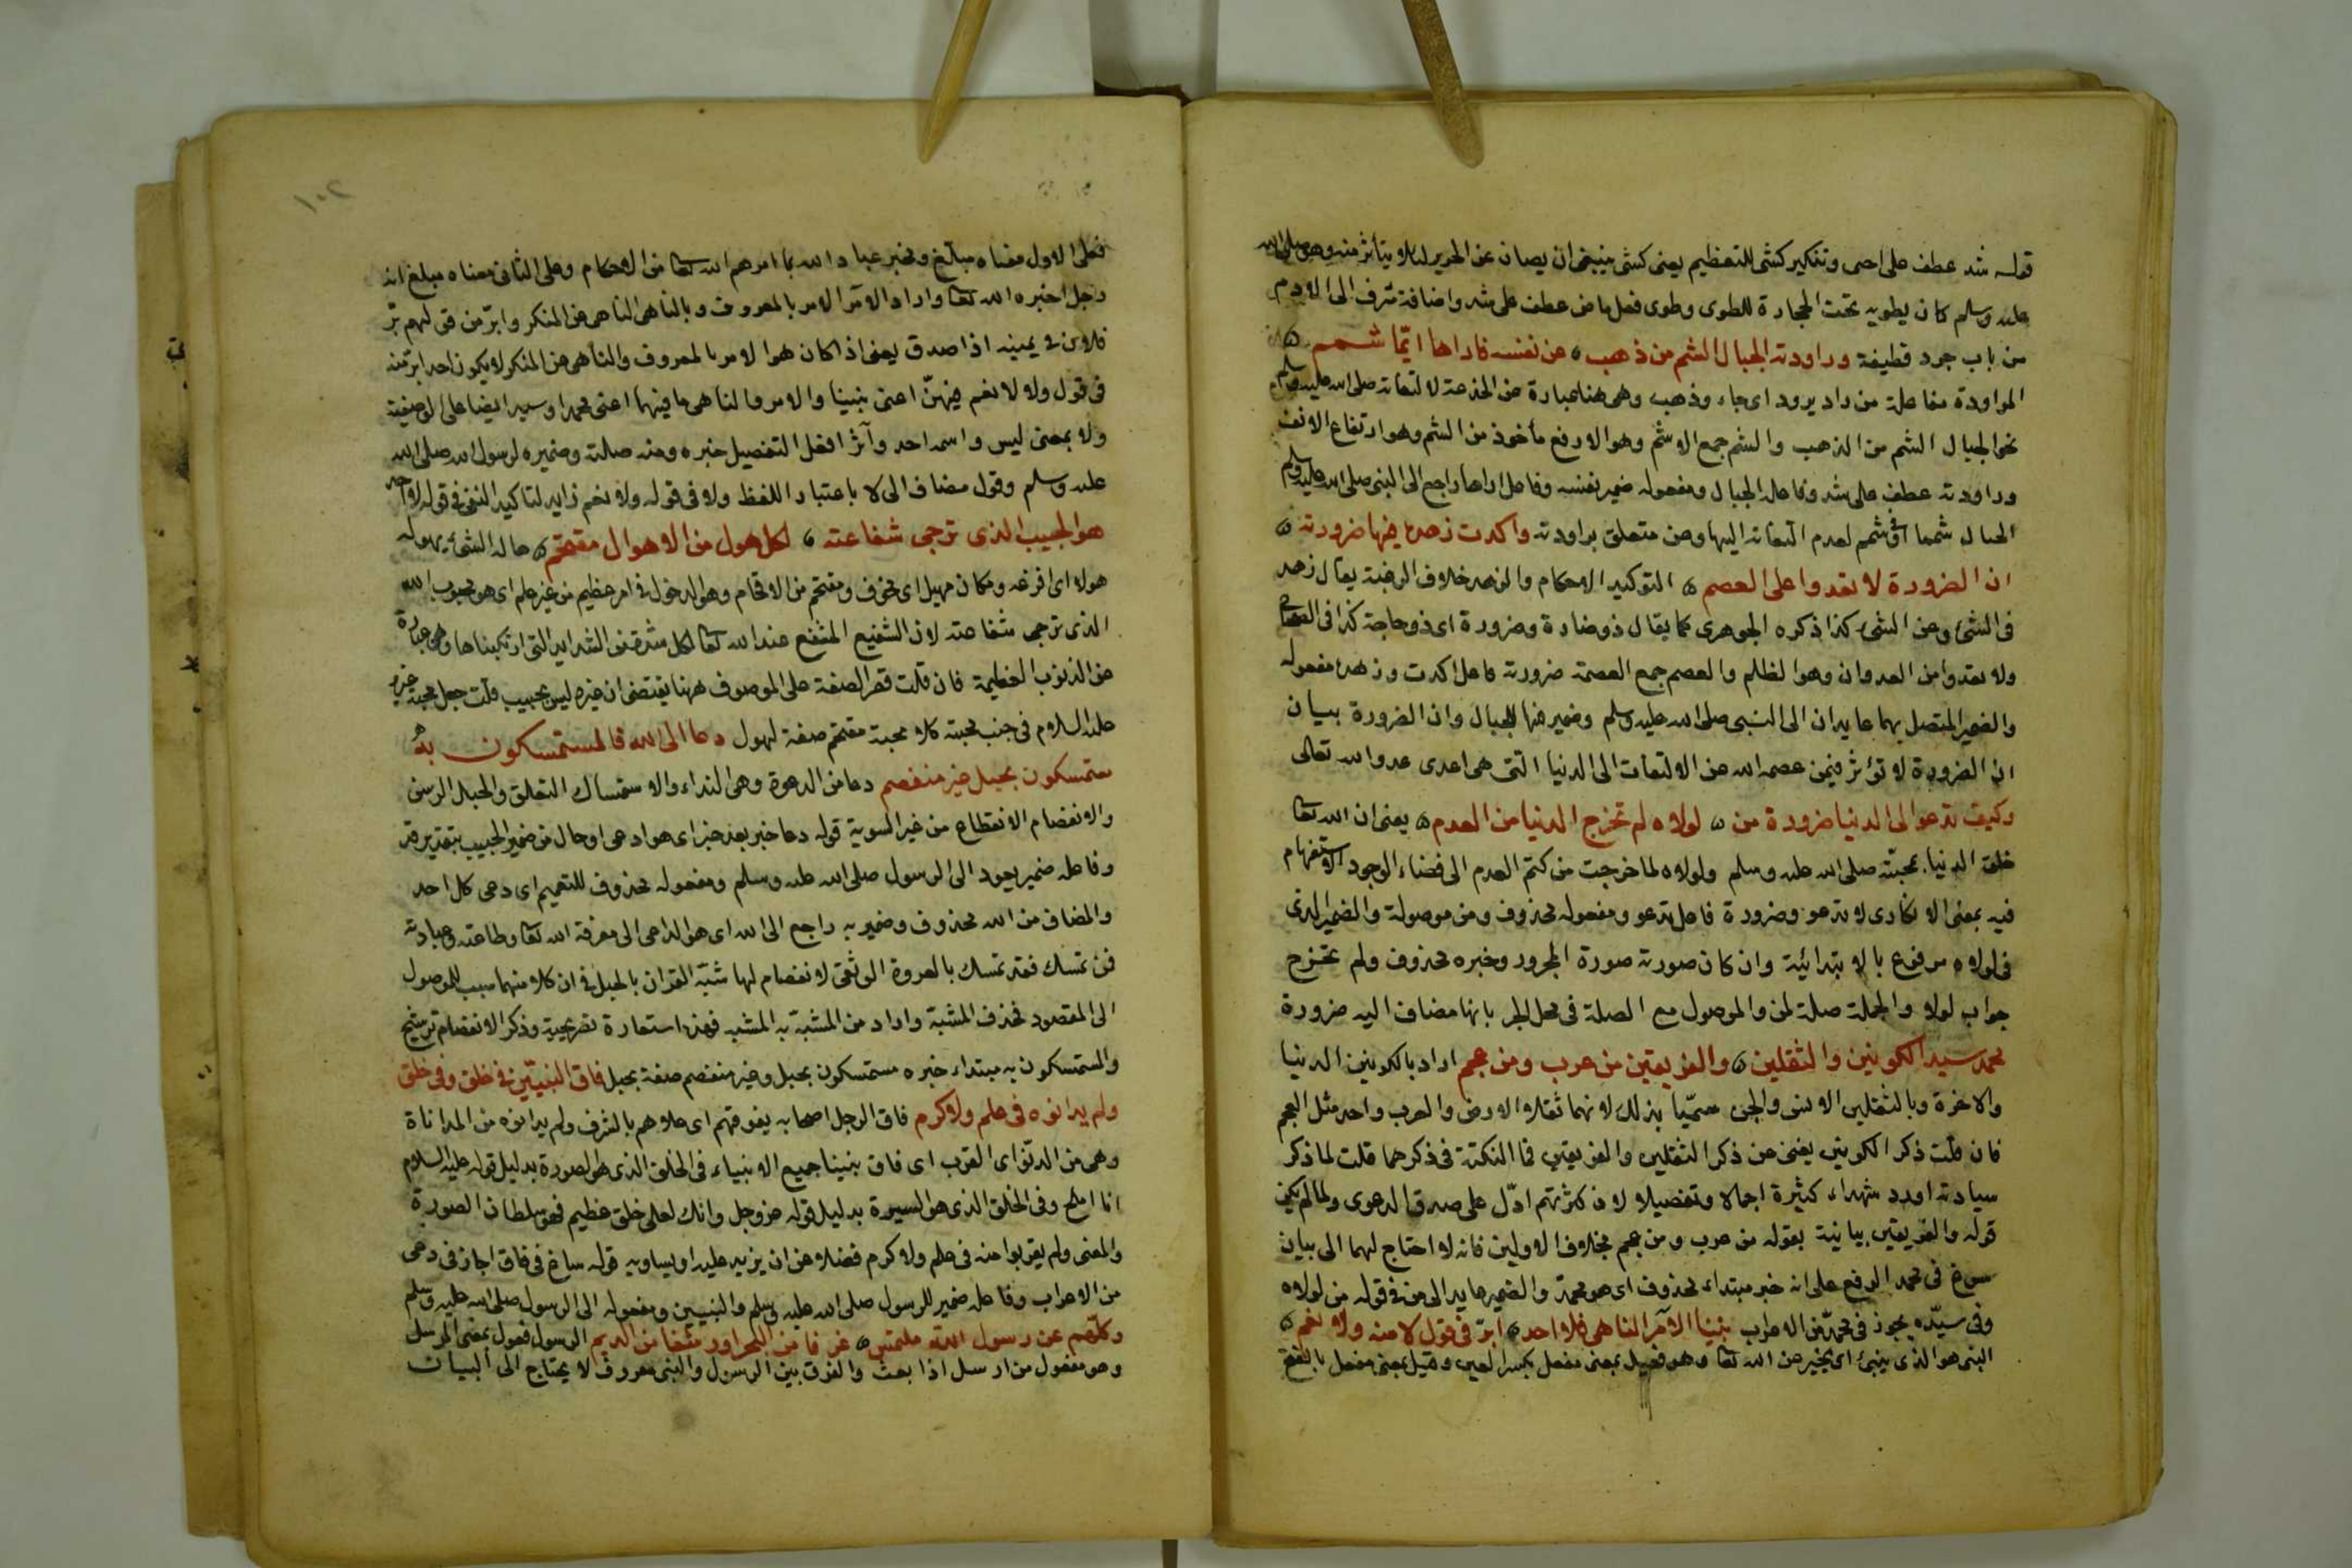 قوله شد عطف على احى وتنكير كشى للتعظيم يعنى كشى ينبغى ان يصان عن الحرير لئلا يتأثر منه وهو صلى الله
عليه وسلم كان يطويه تحت الحجارة للطوى وطوى فعل ماض عطف على شد واضافة مترف الى الادم
من باب جرد قطيفة وراودته الجبال الشم من ذهب ه عن نفسه فاراها ايّما شمم ه
المراودة مفاعلة من راد يرود اى جاء وذهب وهى هنا عبارة عن الخدعة لالتفاته صلى الله عليه وسلم
نحو الجبال الشم من الذهب والشم جمع الاشم وهو الارفع مأخوذ من الشم وهو ارتفاع الانف
وراودته عطف على شد وفاعله الجبال ومفعوله ضمير نفسه وفاعل اراها راجع الى النبى صلى الله عليه وسلم
الجبال شمما اى شمم لعدم التفاته اليها وعن متعلق براودته واكدت زهده فيها ضرورته ه
ان الضرورة لا تعدوا على العصم ه التوكيد الاحكام والزهد خلاف الرغبة يقال زهد
فى الشئ وعن الشئ كذا ذكره الجوهرى كما يقال ذو ضارة وضرورة اى ذو حاجة كذا فى الصحاح
ولا تعدوا من العدوان وهو الظلم والعصم جمع العصمة ضرورته فاعل اكدت وزهده مفعوله
والضمير المتصل بهما عايدان الى النبى صلى الله عليه وسلم وضمير فيها للجبال وان الضرورة بيان
ان الضرورة لا تؤثر فيمن عصمه الله عن الالتفات الى الدنيا التى هى اعدى عدو الله تعالى
وكيف تدعوا الى الدنيا ضرورة من ه لولاه لم تخرج الدنيا من العدم ه يعنى ان الله تعا
خلق الدنيا بمحبته صلى الله عليه وسلم ولولاه لما خرجت من كتم العدم الى فضاء الوجود الاستفهام
فيه بمعنى الانكار اى لا تدعو وضرورة فاعل تدعو ومفعوله محذوف ومن موصولة والضمير الذى
فى لولاه مرفوع بالابتدائية وان كان صورته صورة المجرور وخبره محذوف ولم تخرج
جواب لولا والجملة صلة لمن والموصول مع الصلة فى محل الجر بانها مضاف اليه ضرورة
محمد سيد الكونين والثقلين ه والفريقين من عرب ومن عجم اراد بالكونين الدنيا
والاخرة وبالثقلين الانس والجن سمّيا بذلك لانهما ثقلا الارض والعرب واحد مثل العجم
فان قلت ذكر الكونين يغنى عن ذكر الثقلين والفريقين فما النكتة فى ذكرهما قلت لما ذكر
سيادته اورد شهداء كثيرة اجمالا وتفصيلا لان كثرتهم ادلّ على صدق الدعوى ولما لم يكن
قوله والفريقين بيانية بقوله من عرب ومن عجم بخلاف الاولين فانه لا احتاج لهما الى بيان
سوغ فى محمد الرفع على انه خبر مبتداء محذوف اى هو محمد والضمير عايد الى من فى قوله من لولاه
وفى سيّده يجوز فى محمد من الاعراب نبينا الآمر الناهى فلا احد ه ابرّ فى قول لا منه ولا نعم ه
النبى هو الذى ينبئ اى يخبر عن الله تعا وهو فعيل بمعنى مفعل بكسر العين وقيل بمعنى مفعل بالفتح
١٠٢
فعلى الاول معناه مبلّغ ومخبر عباد الله بما امرهم الله تعا من الاحكام وعلى الثانى معناه مبلغ انه
رجل اخبره الله تعا واراد الآمر الامر بالمعروف وبالناهى الناهى عن المنكر وابرّ من قولهم برّ
فلان فى يمينه اذا صدق يعنى اذا كان هو الامر بالمعروف والناهى عن المنكر لا يكون احد ابرّ منه
فى قول ولا لا نعم اعنى نبينا والامر والناهى ما فيهما اعنى محمدا وسيد ايضا على الوصفية
ولا بمعنى ليس واسمه احد وآثر افعل التفضيل خبره ومنه صلته وضميره لرسول الله صلى الله
عليه وسلم وقول مضاف الى لا باعتبار اللفظ ولا فى قوله ولا نعم زايد لتاكيد النفى فى قوله لا احد
هو الحبيب الذى ترجى شفاعته ه لكل هول من الاهوال مقتحم ه هاله الشئ يهوله
هولا اى افزعه ومكان مهيل اى مخوف ومقتحم من الاقحام وهو الدخول فى امر عظيم من غير علم اى هو محبوب الله
الذى ترجى شفاعته لان الشفيع المشفع عند الله تعا لكل شدة من الشدايد التى ارتكبناها وهى عبارة
عن الذنوب العظيمة فان قلت قصر الصفة على الموصوف ههنا يقتضى ان غيره ليس بحبيب قلت جعل محبة غيره
عليه السلام فى جنب محبته كلا محبة مقتحم صفة لهول دعا الى الله فالمستمسكون به ه
مستمسكون بحبل غير منفصم دعا من الدعوة وهى النداء والاستمساك التعلق والحبل الرسن
والانفصام الانقطاع من غير السوية قوله دعا خبر بعد خبر اى هو ادعى او حال من ضمير الحبيب بتقدير قد
وفاعله ضمير يعود الى الرسول صلى الله عليه وسلم ومفعوله محذوف للتعميم اى دعى كل احد
والمضاف من الله محذوف وضمير به راجع الى الله اى هو الداعى الى معرفة الله تعا وطاعته وعبادته
فمن تمسك فقد تمسك بالعروة الوثقى لا انفصام لها شبّه القران بالحبل فى ان كلا منهما سبب للوصول
الى المقصود فحذف المشبه واراد من المشبه به المشبه فهذه استعارة تصريحية وذكر الانفصام ترشيح
والمستمسكون به مبتداء خبره مستمسكون بحبل وغير منفصم صفة بحبل فاق النبيّين فى خلق وفى خلق
ولم يدانوه فى علم ولا كرم فاق الرجل اصحابه يفوقهم اى علاهم بالشرف ولم يدانوه من المداناة
وهى من الدنوّ اى القرب اى فاق نبينا جميع الانبياء فى الخلق الذى هو الصورة بدليل قوله عليه السلام
انا املح وفى الخلق الذى هو السيرة بدليل قوله عز وجل وانك لعلى خلق عظيم فهو سلطان الصورة
والمعنى ولم يقربوا منه فى علم ولا كرم فضلا عن ان يزيد عليه او يساويه قوله ساغ فى فاق اجاز فى دعى
من الاعراب وفاعله ضمير للرسول صلى الله عليه وسلم والنبيين ومفعوله الى الرسول صلى الله عليه وسلم
وكلّهم عن رسول الله ملتمس ه غرفا من البحر او رشفا من الديم الرسول فعول بمعنى المرسل
وهو مفعول من ارسل اذا بعث والفرق بين الرسول والنبى معروف لا يحتاج الى البيان